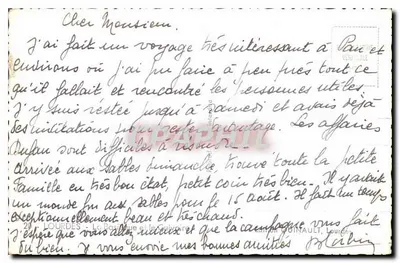 Cher Monsieur.
J'ai fait un voyage très intéressant à Pau et
environs où j'ai pu faire à peu près tout ce
qu'il fallait et rencontré les personnes utiles.
J'y suis restée jusqu'à samedi et avais déjà
des invitations pour rester davantage. Les affaires
enfin sont difficiles à
arrivée aux Sables dimanche, trouvé toute la petite
famille en très bon état, petit coin très bien. Il y avait
un monde fou aux Sables pour le 15 août. Il fait un temps
exceptionnellement beau et très chaud.
LOURDES
J'espère que vous allez mieux et que la campagne vous fait
du bien. Je vous envoie mes bonnes amitiés